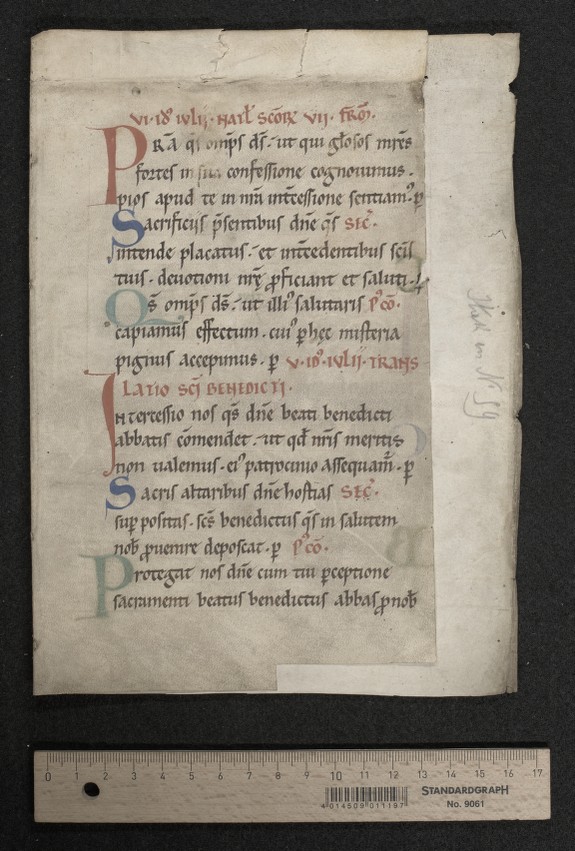 VI·IDꝰ IVLII·NATL̄ SC̄ORꝜ VII·FRM̄·
PR̄A q̄s omp̄s d̄s·ut qui gl̄osos mr̄es
fortes in sua confessione cognouimus·
pios apud te in nr̄a int̄cessione sentiamꝰ·ꝑ
Sacrificiis p̄sentibus dn̄e q̄s SEC̄·
intende placatus·et int̄cedentibus scīs
tuis·deuotioni nr̄ę ꝓficiant et saluti·ꝑ
Q̄s omp̄s d̄s·ut illiꝰ salutaris P̄ꝰCŌ·
capiamus effectum·cuiꝰ ꝑ hęc misteria
pignus accepimus·ꝑ V·IDꝰ·IVLII·TRANS
LATIO SC̄I BENEDICTI·
Intercessio nos q̄s dn̄e beati benedicti
abbatis c̄omendet·ut qd̄ nr̄is meritis
non ualemus·eiꝰ patrocinio assequam̄·ꝑ
Sacris altaribus dn̄e hostias SEC̄·
suꝑ positas·sc̄s benedictus q̄s in salutem
nob̄ ꝓuenire deposcat·ꝑ P̄ꝰCŌ·
Protegat nos dn̄e cum tui ꝑceptione
sacramenti beatus benedictus abbas ꝓ nob̄
0 1 2 3 4 5 6 7 8 9 10 11 12 13 14 15 16 17
4 014509 011197
STANDARDGRAPH
No. 9061